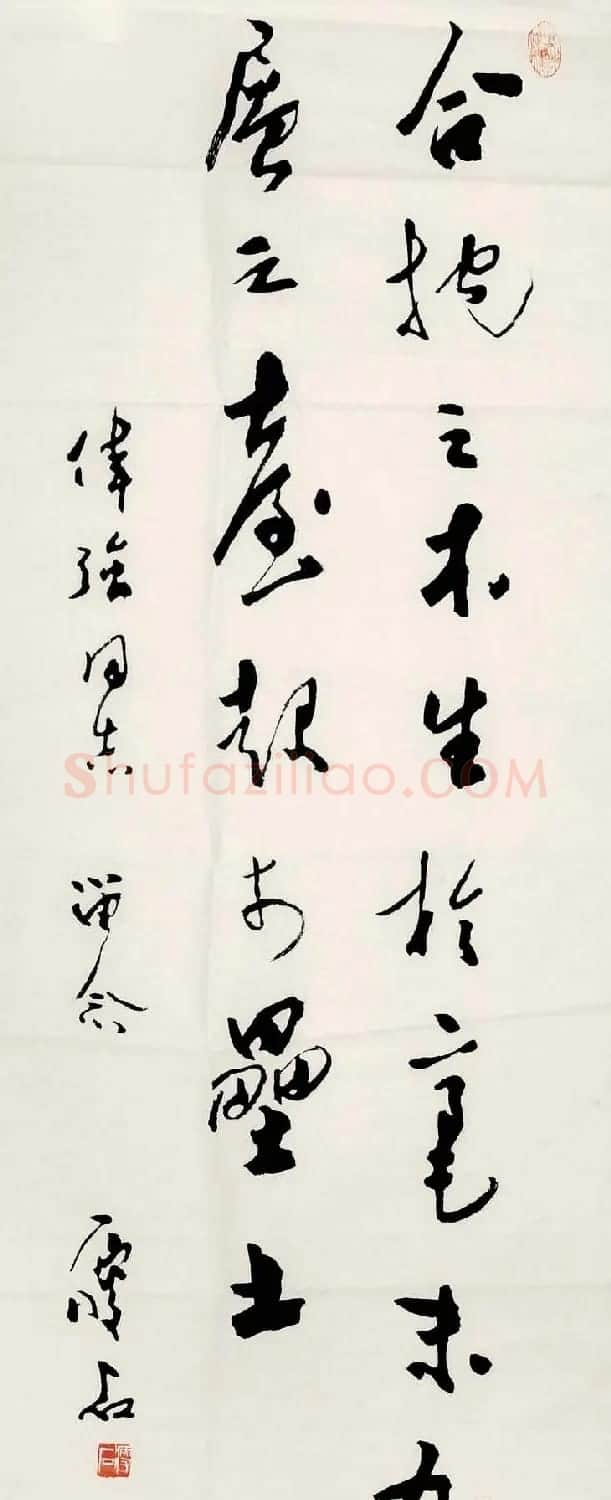 合抱之木生於毫末九
層之臺起於壘土
偉強同志
留念
Shufaziliao.COM